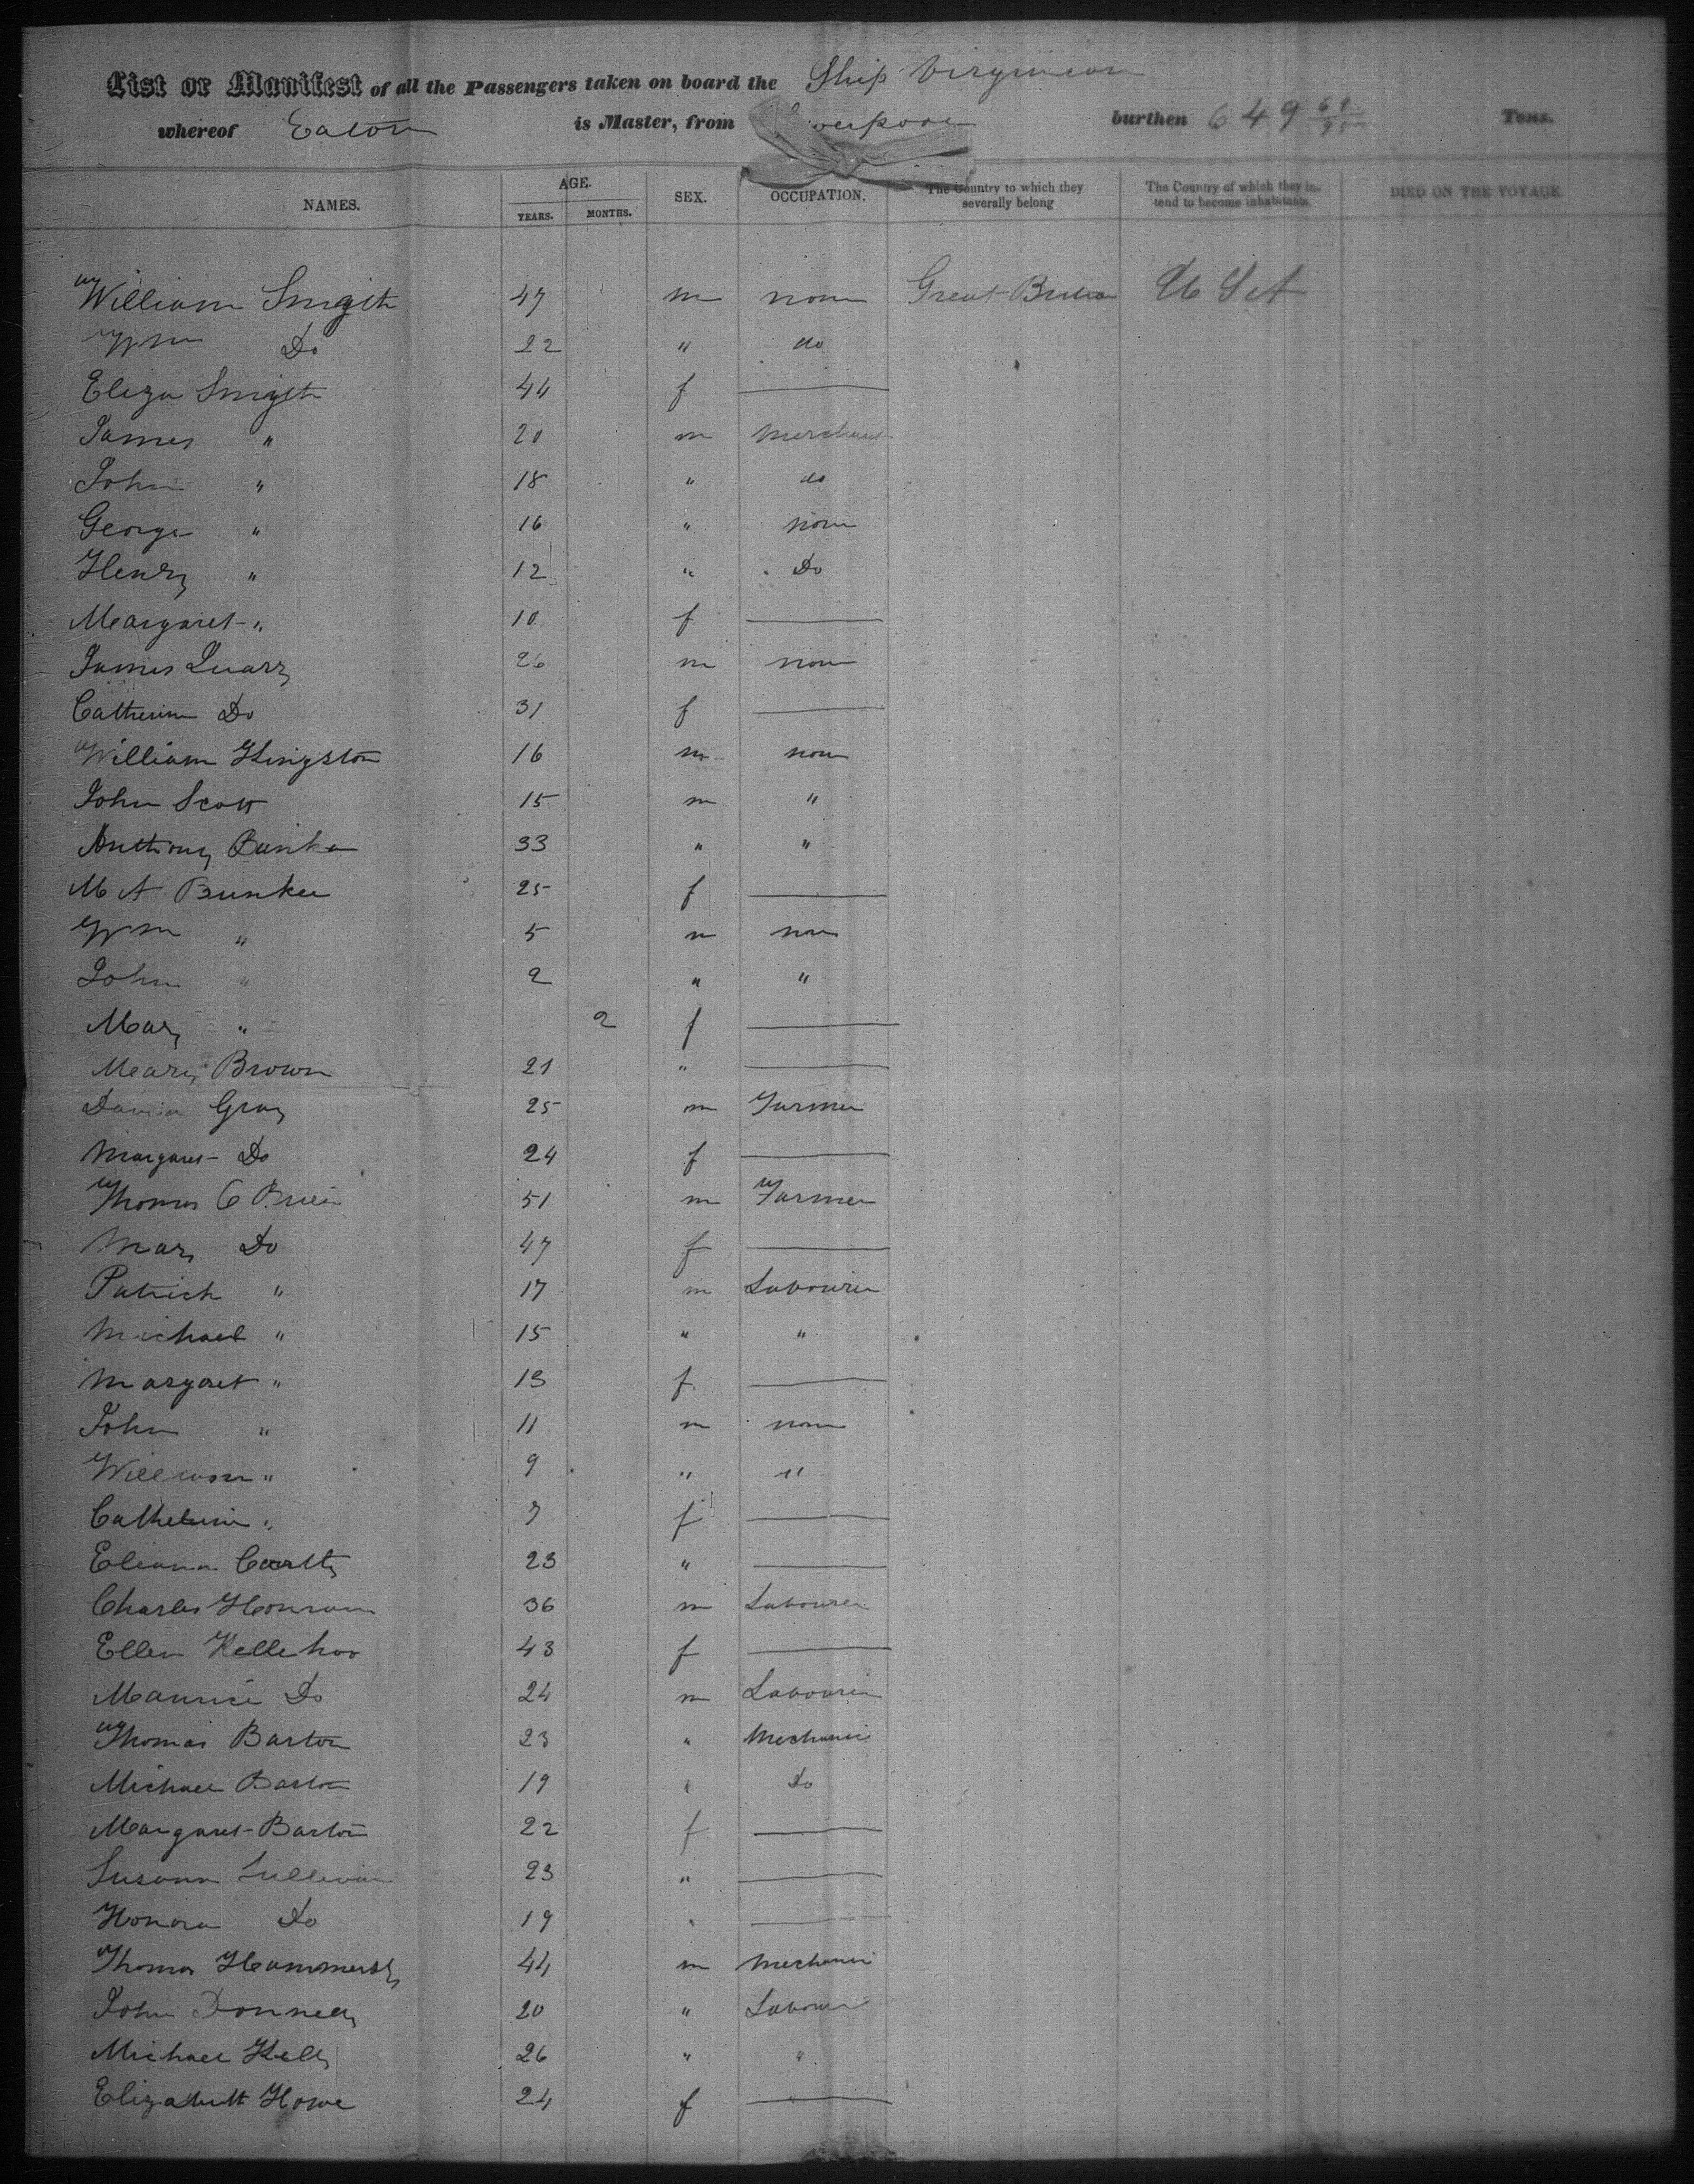 List or Manifest of all the Passengers taken on board the Ship Virginian
whereof Eaton is Master, from Liverpool burthen 649 69/95 Tons.
NAMES. AGE. YEARS. MONTHS. SEX. OCCUPATION. The Country to which they severally belong The Country of which they intend to become inhabitants. DIED ON THE VOYAGE.
William Smyth 47 m none Great Britain U S A
Wm Do 22 " do
Eliza Smyth 44 f
James " 20 m Merchant
John " 18 " do
George " 16 " none
Henry " 12 " Do
Margaret " 10 f
James 26 m none
Catherine Do 31 f
William Kingston 16 m none
John Scott 15 m "
Anthony Bunker 33 " "
M A Bunker 25 f
Wm " 5 m none
John " 2 " "
Mary " 2 f
Mary Brown 21 "
Gray 25 m Farmer
Margaret Do 24 f
Thomas O Brien 51 m Farmer
Mary Do 47 f
Patrick " 17 m Labourer
Michael " 15 " "
Margaret " 13 f
John " 11 m none
William " 9 " "
Catherine " 7 f
23 "
Charles 36 m Labourer
Ellen Kellehoo 43 f
Maurice Do 24 m Labourer
Thomas Barton 23 " Mechanic
Michael Barton 19 " Do
Margaret Barton 22 f
Susana Sullivan 23 "
Honora Do 19 "
Thomas Hammersly 44 m Mechanic
John Donnelly 20 " Labourer
Michael Kelly 26 " "
Elizabeth Howe 24 f